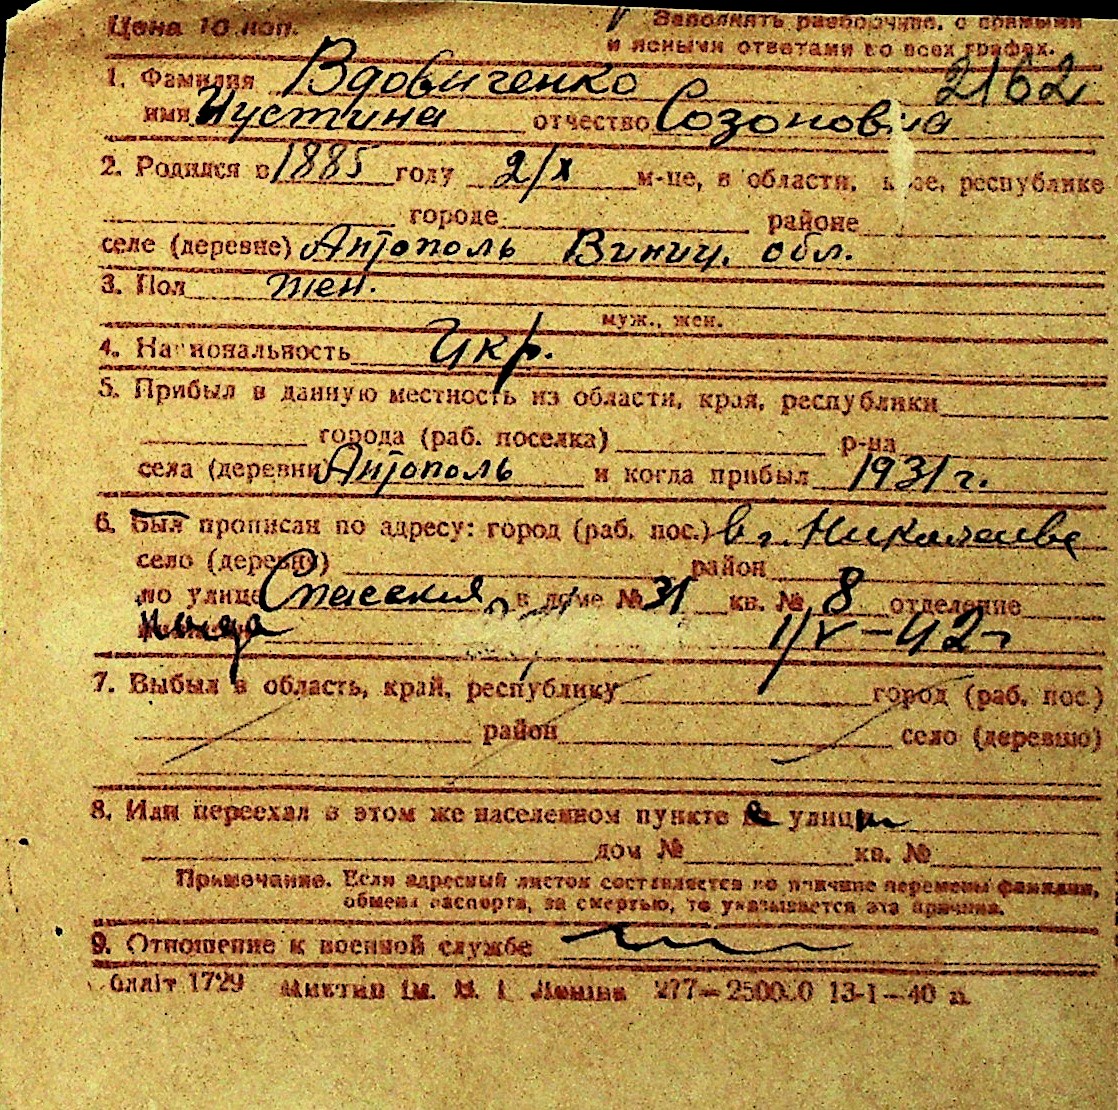 Цена 10 коп. Заполнять разборчиво, с прямыми
и ясными ответами во всех графах.
1. Фамилия Вдовиченко 2162
имя Иустина отчество Созоновна
2. Родился в 1885 году 2/X м-це, в области, крае, республике
городе районе
селе (деревне) Антополь Винниц. обл.
3. Пол жен.
муж., жен.
4. Национальность Укр.
5. Прибыл в данную местность из области, края, республики
города (раб. поселка) р-на
села (деревни Антополь и когда прибыл 1931 г.
6. Был прописан по адресу: город (раб. пос.) в г. Николаеве
село (деревню) район
по улице Спасская, в доме № 31 кв. № 8 отделение
1/V-42 г
7. Выбыл в область, край, республику город (раб. пос.)
район село (деревню)
8. Или переехал в этом же населенном пункте на улицу
дом № кв. №
Примечание. Если адресный листок составляется по причине перемены фамилии,
обмена паспорта, за смертью, то указывается эта причина.
9. Отношение к военной службе
блліт 1729 ім. В. І. Леніна 277— 13-1—40 п.